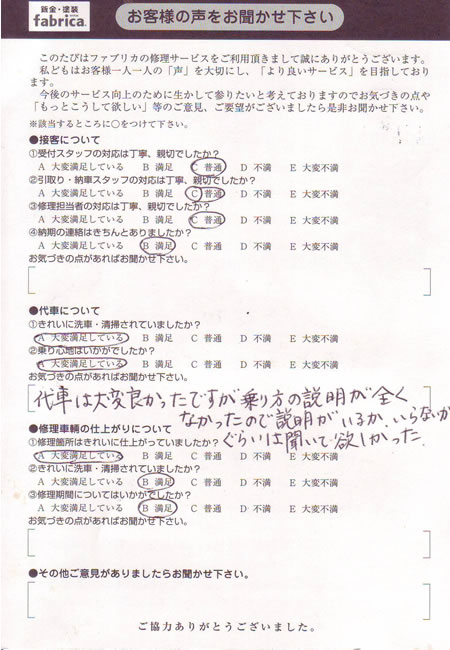 鈑金・塗装
fabrica.
お客様の声をお聞かせ下さい
このたびはファブリカの修理サービスをご利用頂きまして誠にありがとうございます。
私どもはお客様一人一人の「声」を大切にし、「より良いサービス」を目指しており
ます。
今後のサービス向上のために生かして参りたいと考えておりますのでお気づきの点や
「もっとこうして欲しい」等のご意見、ご要望がございましたら是非お聞かせ下さい。
※該当するところに○をつけて下さい。
●接客について
①受付スタッフの対応は丁寧、親切でしたか？
A 大変満足している B 満足 C 普通 D 不満 E 大変不満
②引取り・納車スタッフの対応は丁寧、親切でしたか？
A 大変満足している B 満足 C 普通 D 不満 E 大変不満
③修理担当者の対応は丁寧、親切でしたか？
A 大変満足している B 満足 C 普通 D 不満 E 大変不満
④納期の連絡はきちんとありましたか？
A 大変満足している B 満足 C 普通 D 不満 E 大変不満
お気づきの点があればお聞かせ下さい。
●代車について
①きれいに洗車・清掃されていましたか？
A 大変満足している B 満足 C 普通 D 不満 E 大変不満
②乗り心地はいかがでしたか？
A 大変満足している B 満足 C 普通 D 不満 E 大変不満
お気づきの点があればお聞かせ下さい。
代車は大変良かったですが乗り方の説明が全く
なかったので説明がいるか、いらないか
ぐらいは聞いて欲しかった。
●修理車輌の仕上がりについて
①修理箇所はきれいに仕上がっていましたか？
A 大変満足している B 満足 C 普通 D 不満 E 大変不満
②きれいに洗車・清掃されていましたか？
A 大変満足している B 満足 C 普通 D 不満 E 大変不満
③修理期間についてはいかがでしたか？
A 大変満足している B 満足 C 普通 D 不満 E 大変不満
お気づきの点があればお聞かせ下さい。
●その他ご意見がありましたらお聞かせ下さい。
ご協力ありがとうございました。